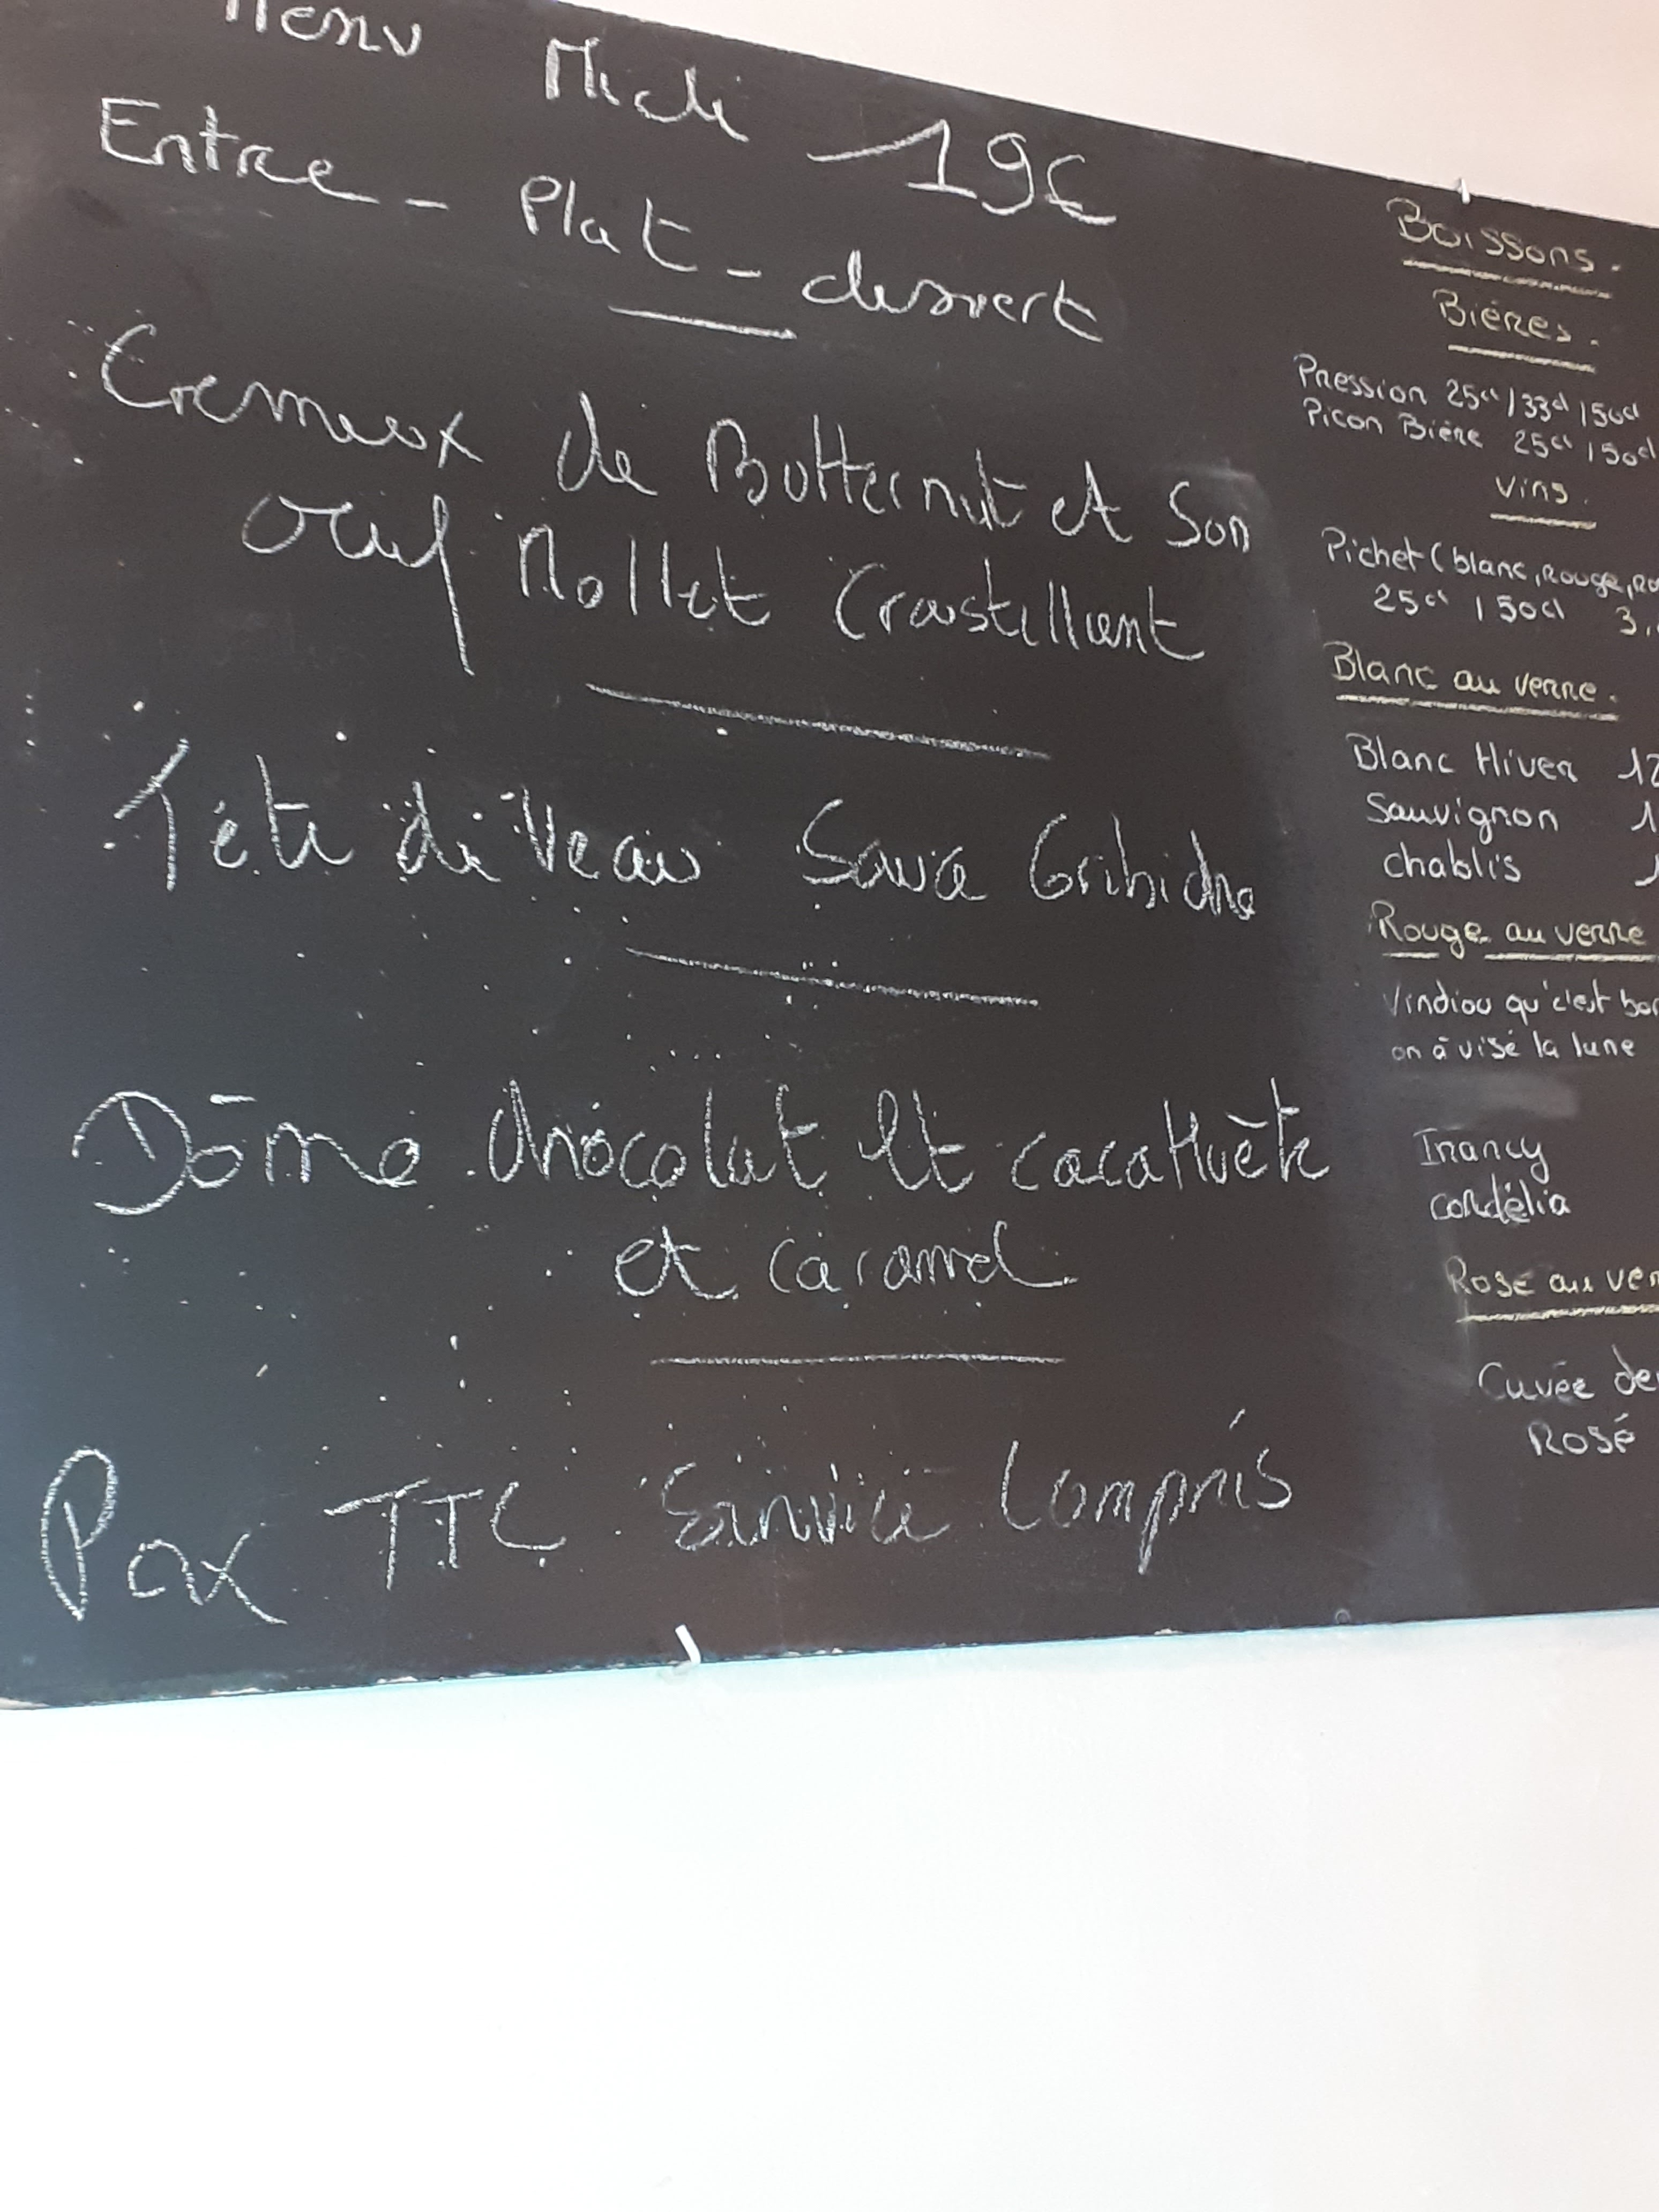 Menu Midi 19€
Entree - Plat - dessert
Cremeux de Butternut et Son
oeuf Mollet Croustillant
Tête de Veau Sauce Gribiche
Dôme chocolat et cacahuète
et caramel
Prix TTC Service Compris
Boissons.
Bières.
Pression 25cl/33cl/50cl
Picon Bière 25cl/50cl
Vins.
Pichet (blanc, rouge, ro
25cl / 50cl 3,
Blanc au verre.
Blanc Hiver 12
Sauvignon 1
chablis 1
Rouge au verre
Vindiou qu'c'est bon
on à visé la lune
Irancy
cordélia
Rosé au ver
Cuvée de
Rosé